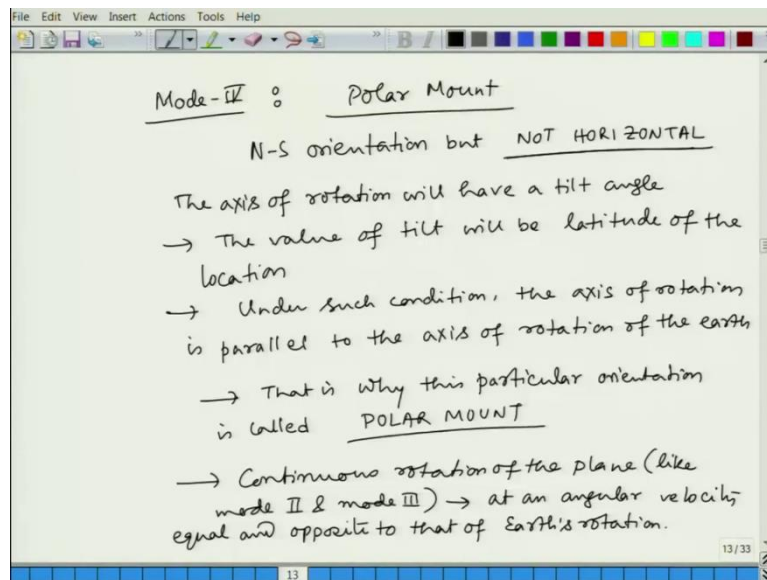 File Edit View Insert Actions Tools Help
Mode-IV : Polar Mount
N-S orientation but NOT HORIZONTAL
The axis of rotation will have a tilt angle
→ The value of tilt will be latitude of the
location
→ Under such condition, the axis of rotation
is parallel to the axis of rotation of the earth
→ That is why this particular orientation
is called POLAR MOUNT
→ Continuous rotation of the plane (like
mode II & mode III) → at an angular velocity
equal and opposite to that of Earth's rotation.
13/33
13